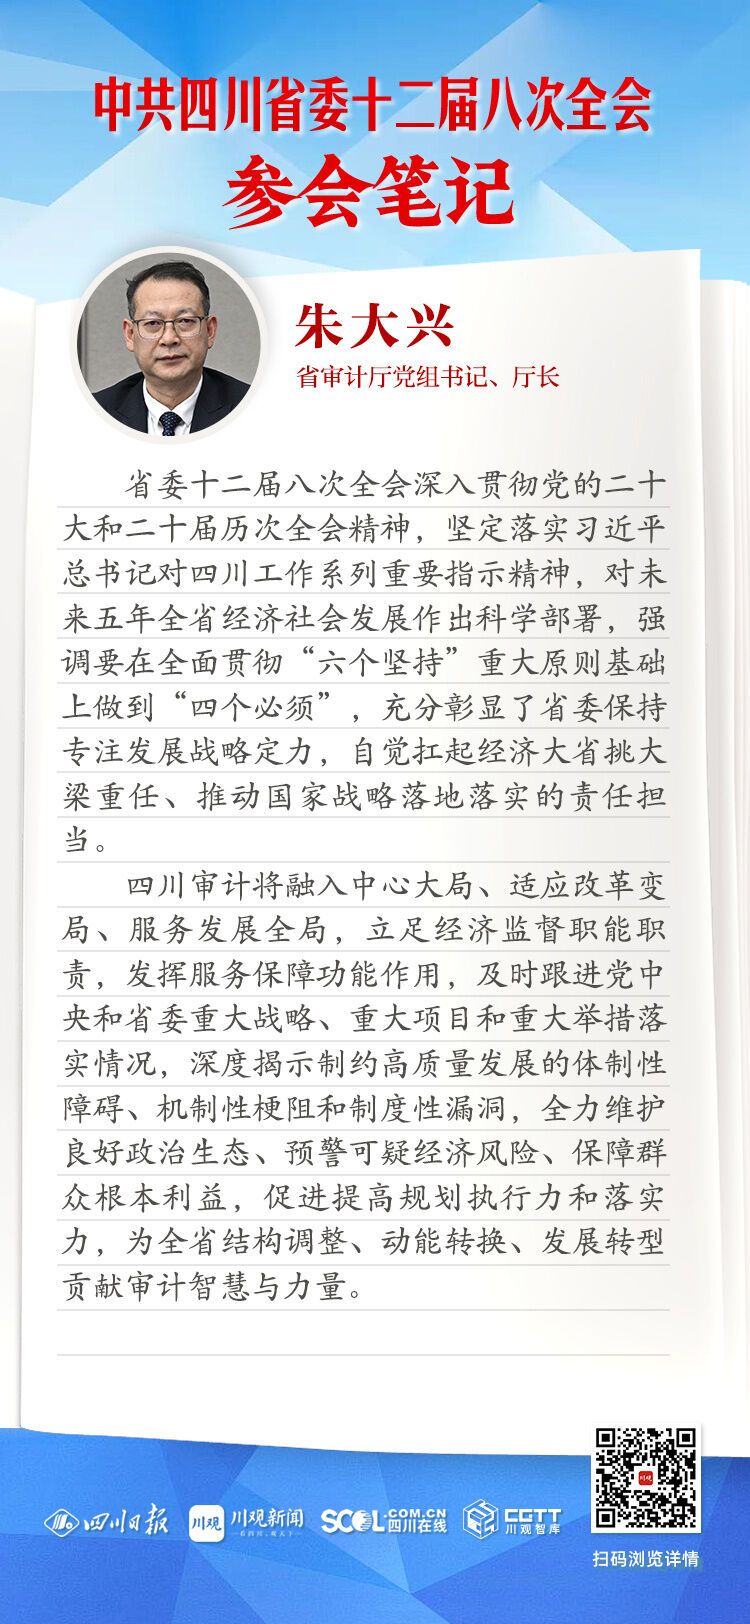 中共四川省委十二届八次全会
参会笔记
朱大兴
省审计厅党组书记、厅长
省委十二届八次全会深入贯彻党的二十
大和二十届历次全会精神，坚定落实习近平
总书记对四川工作系列重要指示精神，对未
来五年全省经济社会发展作出科学部署，强
调要在全面贯彻“六个坚持”重大原则基础
上做到“四个必须”，充分彰显了省委保持
专注发展战略定力，自觉扛起经济大省挑大
梁重任、推动国家战略落地落实的责任担
当。
四川审计将融入中心大局、适应改革变
局、服务发展全局，立足经济监督职能职
责，发挥服务保障功能作用，及时跟进党中
央和省委重大战略、重大项目和重大举措落
实情况，深度揭示制约高质量发展的体制性
障碍、机制性梗阻和制度性漏洞，全力维护
良好政治生态、预警可疑经济风险、保障群
众根本利益，促进提高规划执行力和落实
力，为全省结构调整、动能转换、发展转型
贡献审计智慧与力量。
四川日报
川观
川观新闻
一看四川，观天下一
SCOL.COM.CN
四川在线
CGTT
川观智库
川观
扫码浏览详情